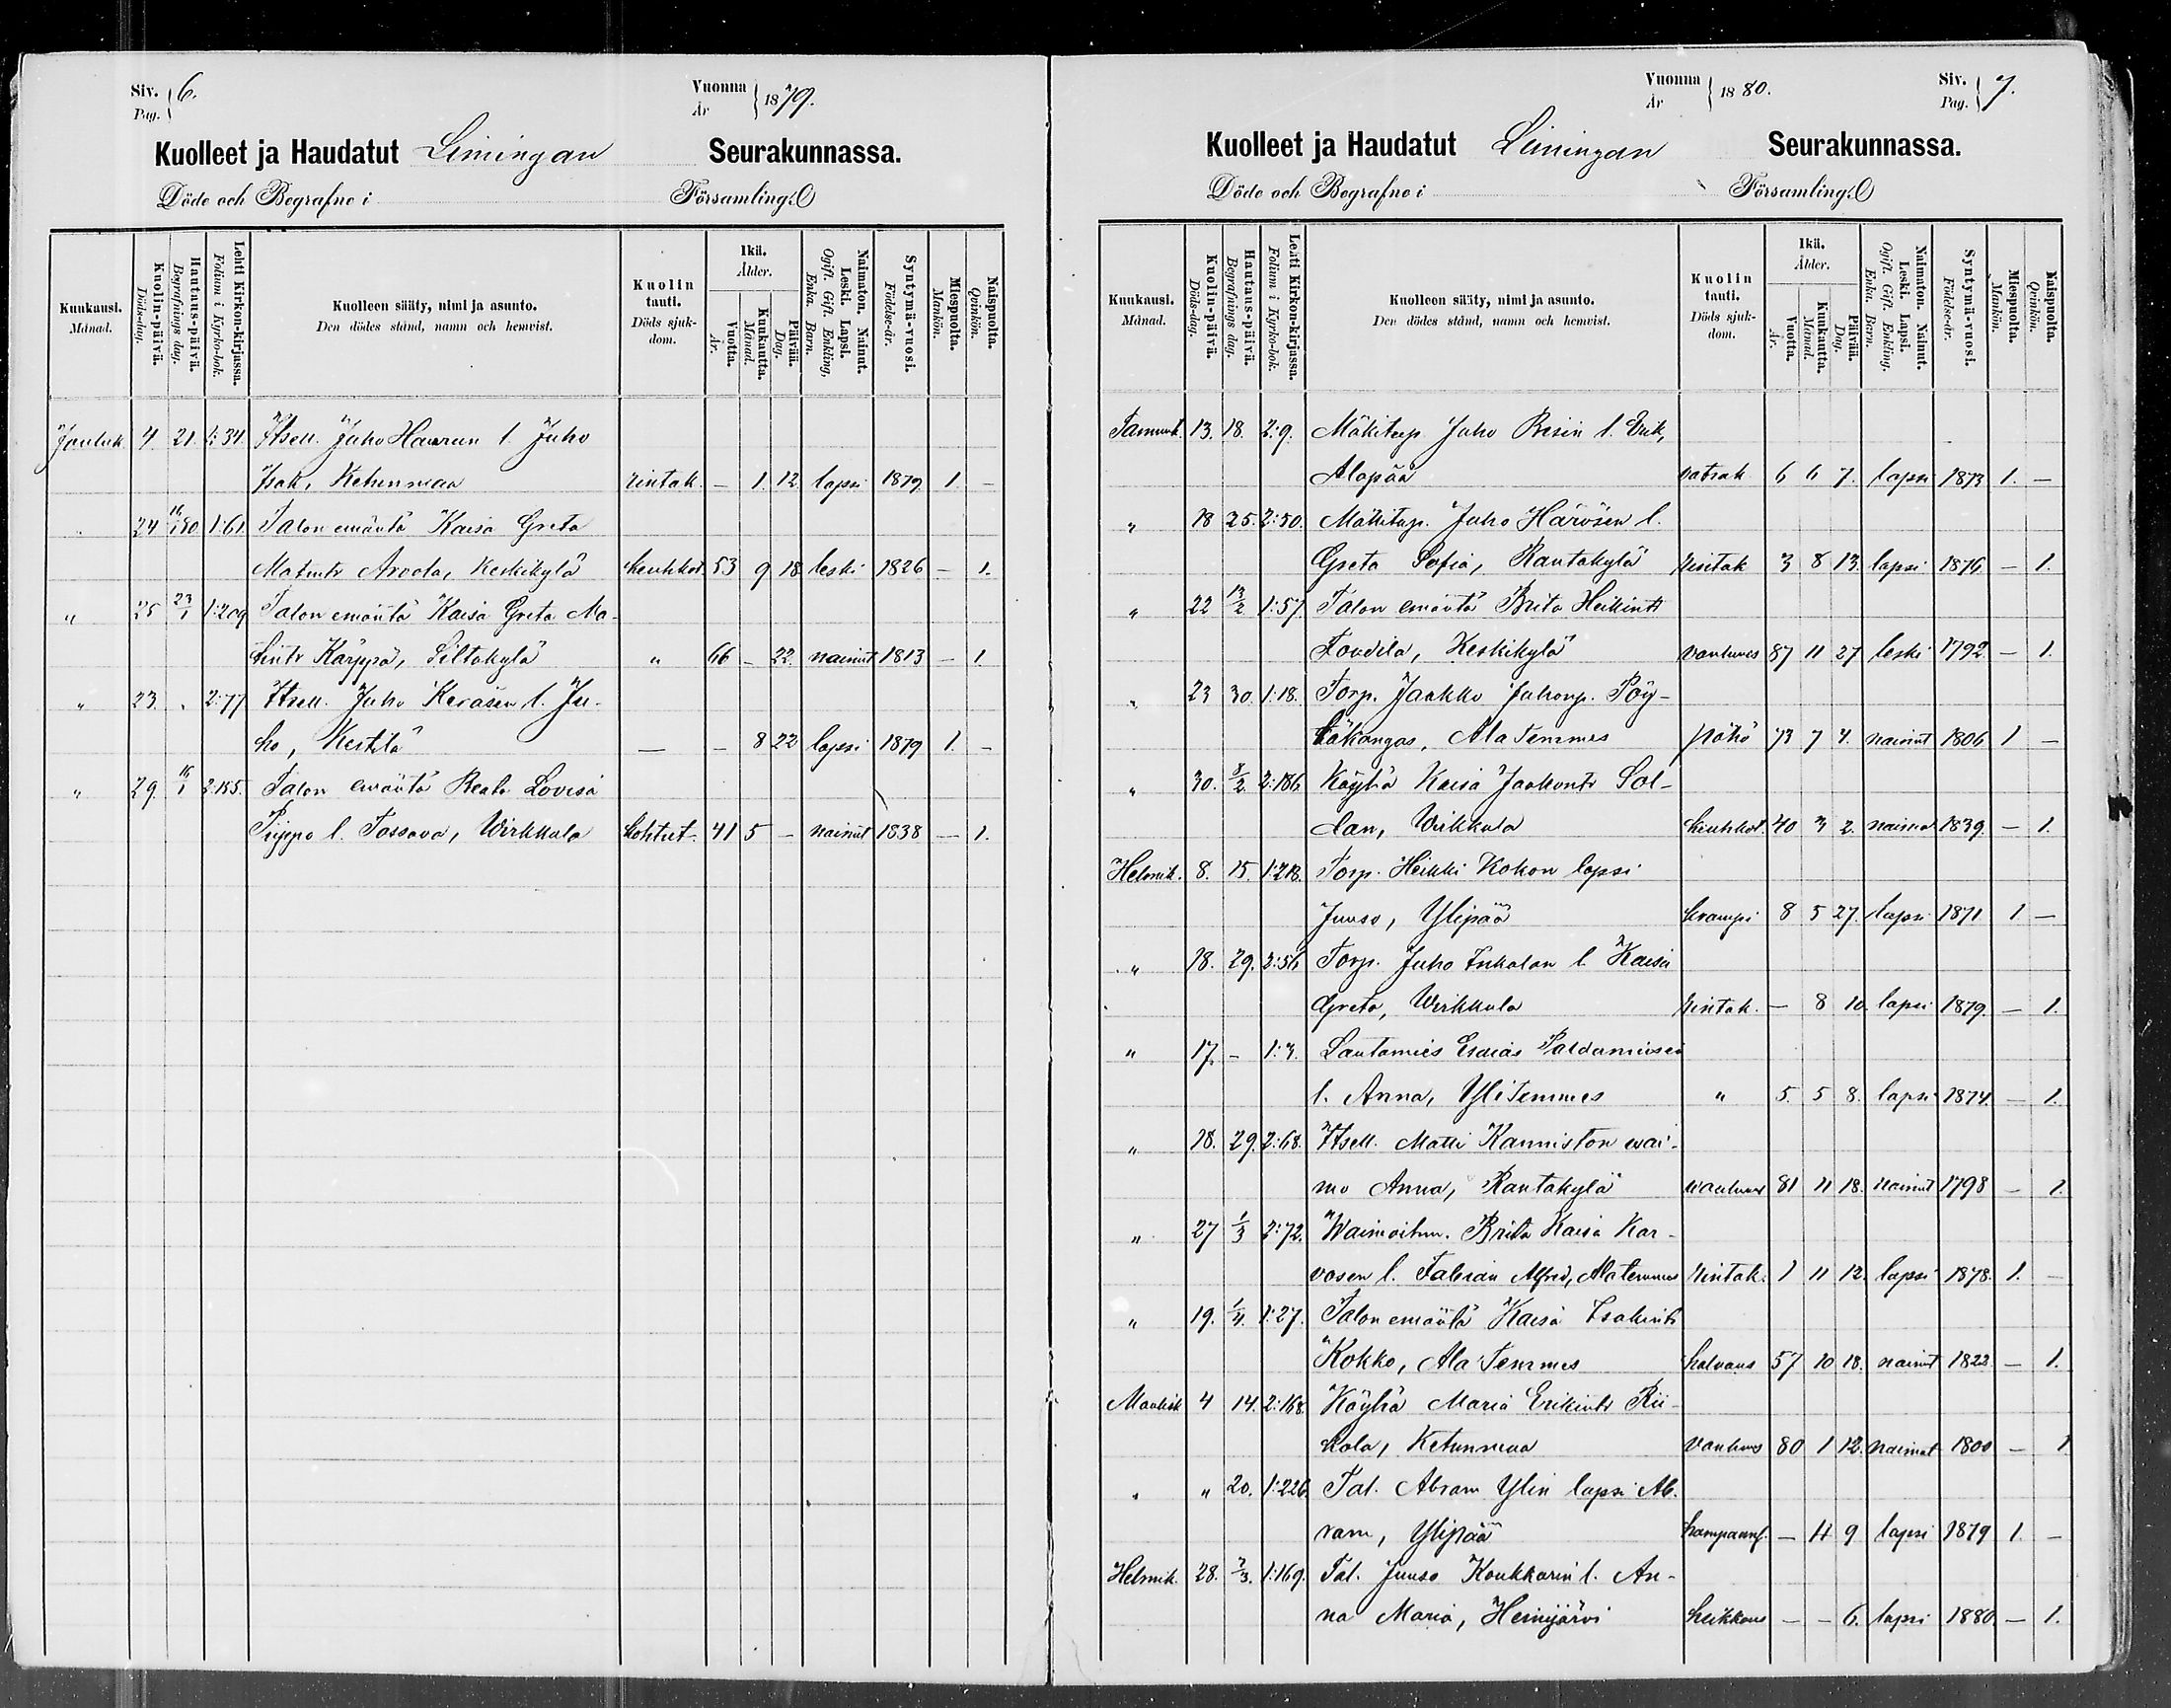 Siv. 6.
Pag.
Vuonna 1879.
År
Kuolleet ja Haudatut Limingan Seurakunnassa.
Döde och Begrafne i Församling.
Kuukausi. Månad.
Kuolin-päivä. Döds-dag.
Hautaus-päivä. Begrafnings dag.
Lehti Kirkon-kirjassa. Folium i Kyrko-bok.
Kuolleen sääty, nimi ja asunto. Den dödes stånd, namn och hemvist.
Kuolin tauti. Döds sjukdom.
Ikä. Ålder.
Vuotta. År.
Kuukautta. Månad.
Päivää. Dag.
Naimaton. Nainut. Leski. Lapsi. Ogift. Gift. Enkling, Enka. Barn.
Syntymä-vuosi. Födelse-år.
Miespuolta. Mankön.
Naispuolta. Qvinkön.
Jouluk. 4. 21. 1:34. Itsell. Juho Hannun l. Juho
Isak, Ketunmaa rintak. — 1. 12 lapsi 1879 1. —
24 1:61. Talon emäntä Kaisa Greta
Matintr Arvola, Keskikylä keuhkot. 53 9 18 leski 1826 — 1.
" 25 23/1 1:209 Talon emäntä Kaisa Greta Ma-
tintr Karppa, Siltakylä " 66 — 22. nainut 1813 — 1.
" 23. " 2:77 Itsell. Juho Keräsen l. Ju-
ho, Kestilä — — 8 22 lapsi 1879 1. —
" 29. 16/1 2:185. Talon emäntä Beata Lovisa
Piippo l. Tassava, Wirkkula kohtut. 41 5 — nainut 1838 — 1.
Vuonna 1880.
År
Siv. 7.
Pag.
Kuolleet ja Haudatut Limingan Seurakunnassa.
Döde och Begrafne i Församling.
Kuukausi. Månad.
Kuolin-päivä. Döds-dag.
Hautaus-päivä. Begrafnings dag.
Lehti Kirkon-kirjassa. Folium i Kyrko-bok.
Kuolleen sääty, nimi ja asunto. Den dödes stånd, namn och hemvist.
Kuolin tauti. Döds sjukdom.
Ikä. Ålder.
Vuotta. År.
Kuukautta. Månad.
Päivää. Dag.
Naimaton. Nainut. Leski. Lapsi. Ogift. Gift. Enkling, Enka. Barn.
Syntymä-vuosi. Födelse-år.
Miespuolta. Mankön.
Naispuolta. Qvinkön.
Tammik. 13. 18. 2:9. Mäkitup. Juho l. Erik,
Alapää vatsak 6 6 7. lapsi 1873 1. —
" 18 25. 2:50. Mäkitup. Juho Härösen l.
Greta Sofia, Rantakylä rintak 3 8 13. lapsi 1876 — 1.
" 22 13/2 1:57. Talon emäntä Brita Heikintr
Keskikylä vanhuus 87 11 27 leski 1792 — 1.
" 23 30. 1:18. Torp. Jaakko Juhonp. Pöy-
täkangas, Ala Temmes pöhö 73 7 4. nainut 1806 1 —
" 30. 8/2 2:186. Köyhä Kaisa Jaakontr Sol-
dan, Wirkkula keuhkot. 40 3 2. nainut 1839. — 1.
Helmik. 8. 15. 1:218. Torp. Heikki Kokon lapsi
Juuso, Ylipää krampi 8 5 27. lapsi 1871 1 —
" 18. 29. 2:56 Torp. Juho Inkalan l. Kaisa
Greta, Wirkkula rintak. — 8 10. lapsi 1879. — 1.
" 17. — 1:3. Lautamies Esaias Paldaniusen
l. Anna, Yli Temmes " 5. 5 8. lapsi 1874. — 1.
" 18. 29. 2:68. Itsell. Matti Kanniston wai-
mo Anna, Rantakylä vanhuus 81 11 18. nainut 1798 — 1.
" 27 1/3 2:72. Waimoihm. Brita Kaisa Kar-
vosen l. Fabian Alfred, Alatemmes rintak. 1 11 12. lapsi 1878. 1. —
" 19. 1/4. 1:27. Talon emäntä Kaisa Isakintr
Kokko, Ala Temmes halvaus 57 10 18. nainut 1822 — 1.
Maalisk 4 14. 2:168. Köyhä Maria Erikintr Rii-
kola, Ketunmaa vanhuus 80 1 12. nainut 1800 — 1
" " 20. 1:226. Tal. Abram Ylin lapsi Ab-
ram, Ylipää — 11 9 lapsi 1879 1. —
Helmik. 28. 7/3. 1:169. Tal. Juuso Koukkarin l. An-
na Maria, Heinijärvi heikkous — — 6. lapsi 1880. — 1.